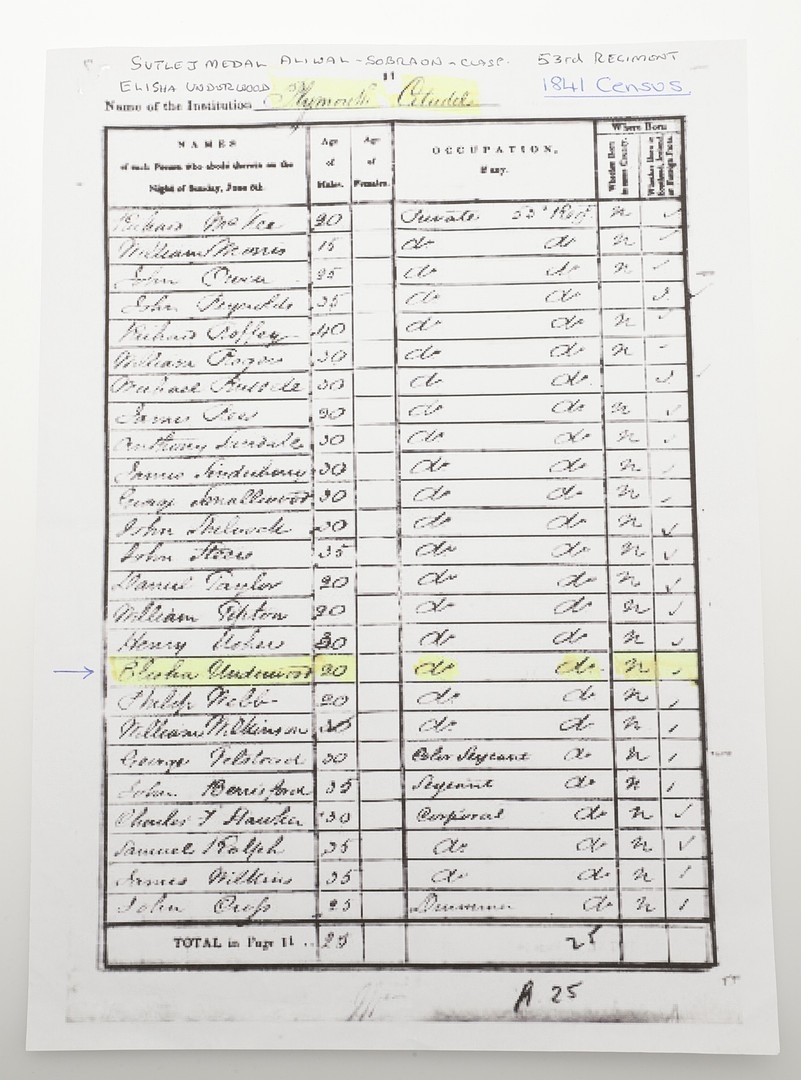 SUTLEJ MEDAL ALIWAL - SOBRAON - CLASP. 53rd REGIMENT
11
ELISHA UNDERWOOD 1841 Census.
Name of the Institution Plymouth Citadel
NAMES of each Person who abode therein on the Night of Sunday, June 6th. Age of Males. Age of Females. OCCUPATION, if any. Where Born
Whether Born in same County. Whether Born in Scotland, Ireland, or Foreign Parts.
Richard 20 Private 53d Regt n
William Morris 15 do do n
John 25 do do n
John Reynolds 35 do do
Richard 40 do do n
William 30 do do n
Michael 30 do do
James 20 do do n
Anthony 30 do do n
James 30 do do n
George Smallwood 30 do do n
John 20 do do n
John 35 do do n
Daniel Taylor 20 do do n
William Tipton 20 do do n
Henry 30 do do n
Elisha Underwood 20 do do n
Philip Webb 20 do do n
William Wilkinson do do n
George 30 Color Sergeant do n
John Berrisford 35 Sergeant do n
Charles F Hawker 30 Corporal do n
Samuel Ralph 35 do do n
James Wilkins 35 do do n
John Cross 25 Drummer do n
TOTAL in Page 11 . . 25 25
A 25